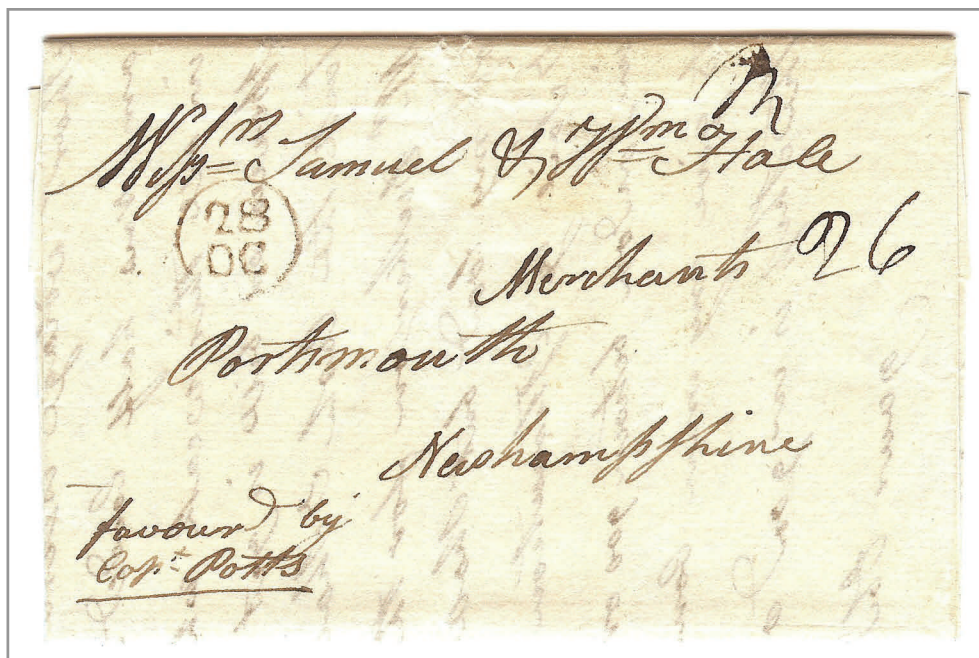 Mess.rs Samuel & Wm Hale
28
OC
Merchants 26
Portsmouth
Newhampshire
favour'd by
Capt. Potts